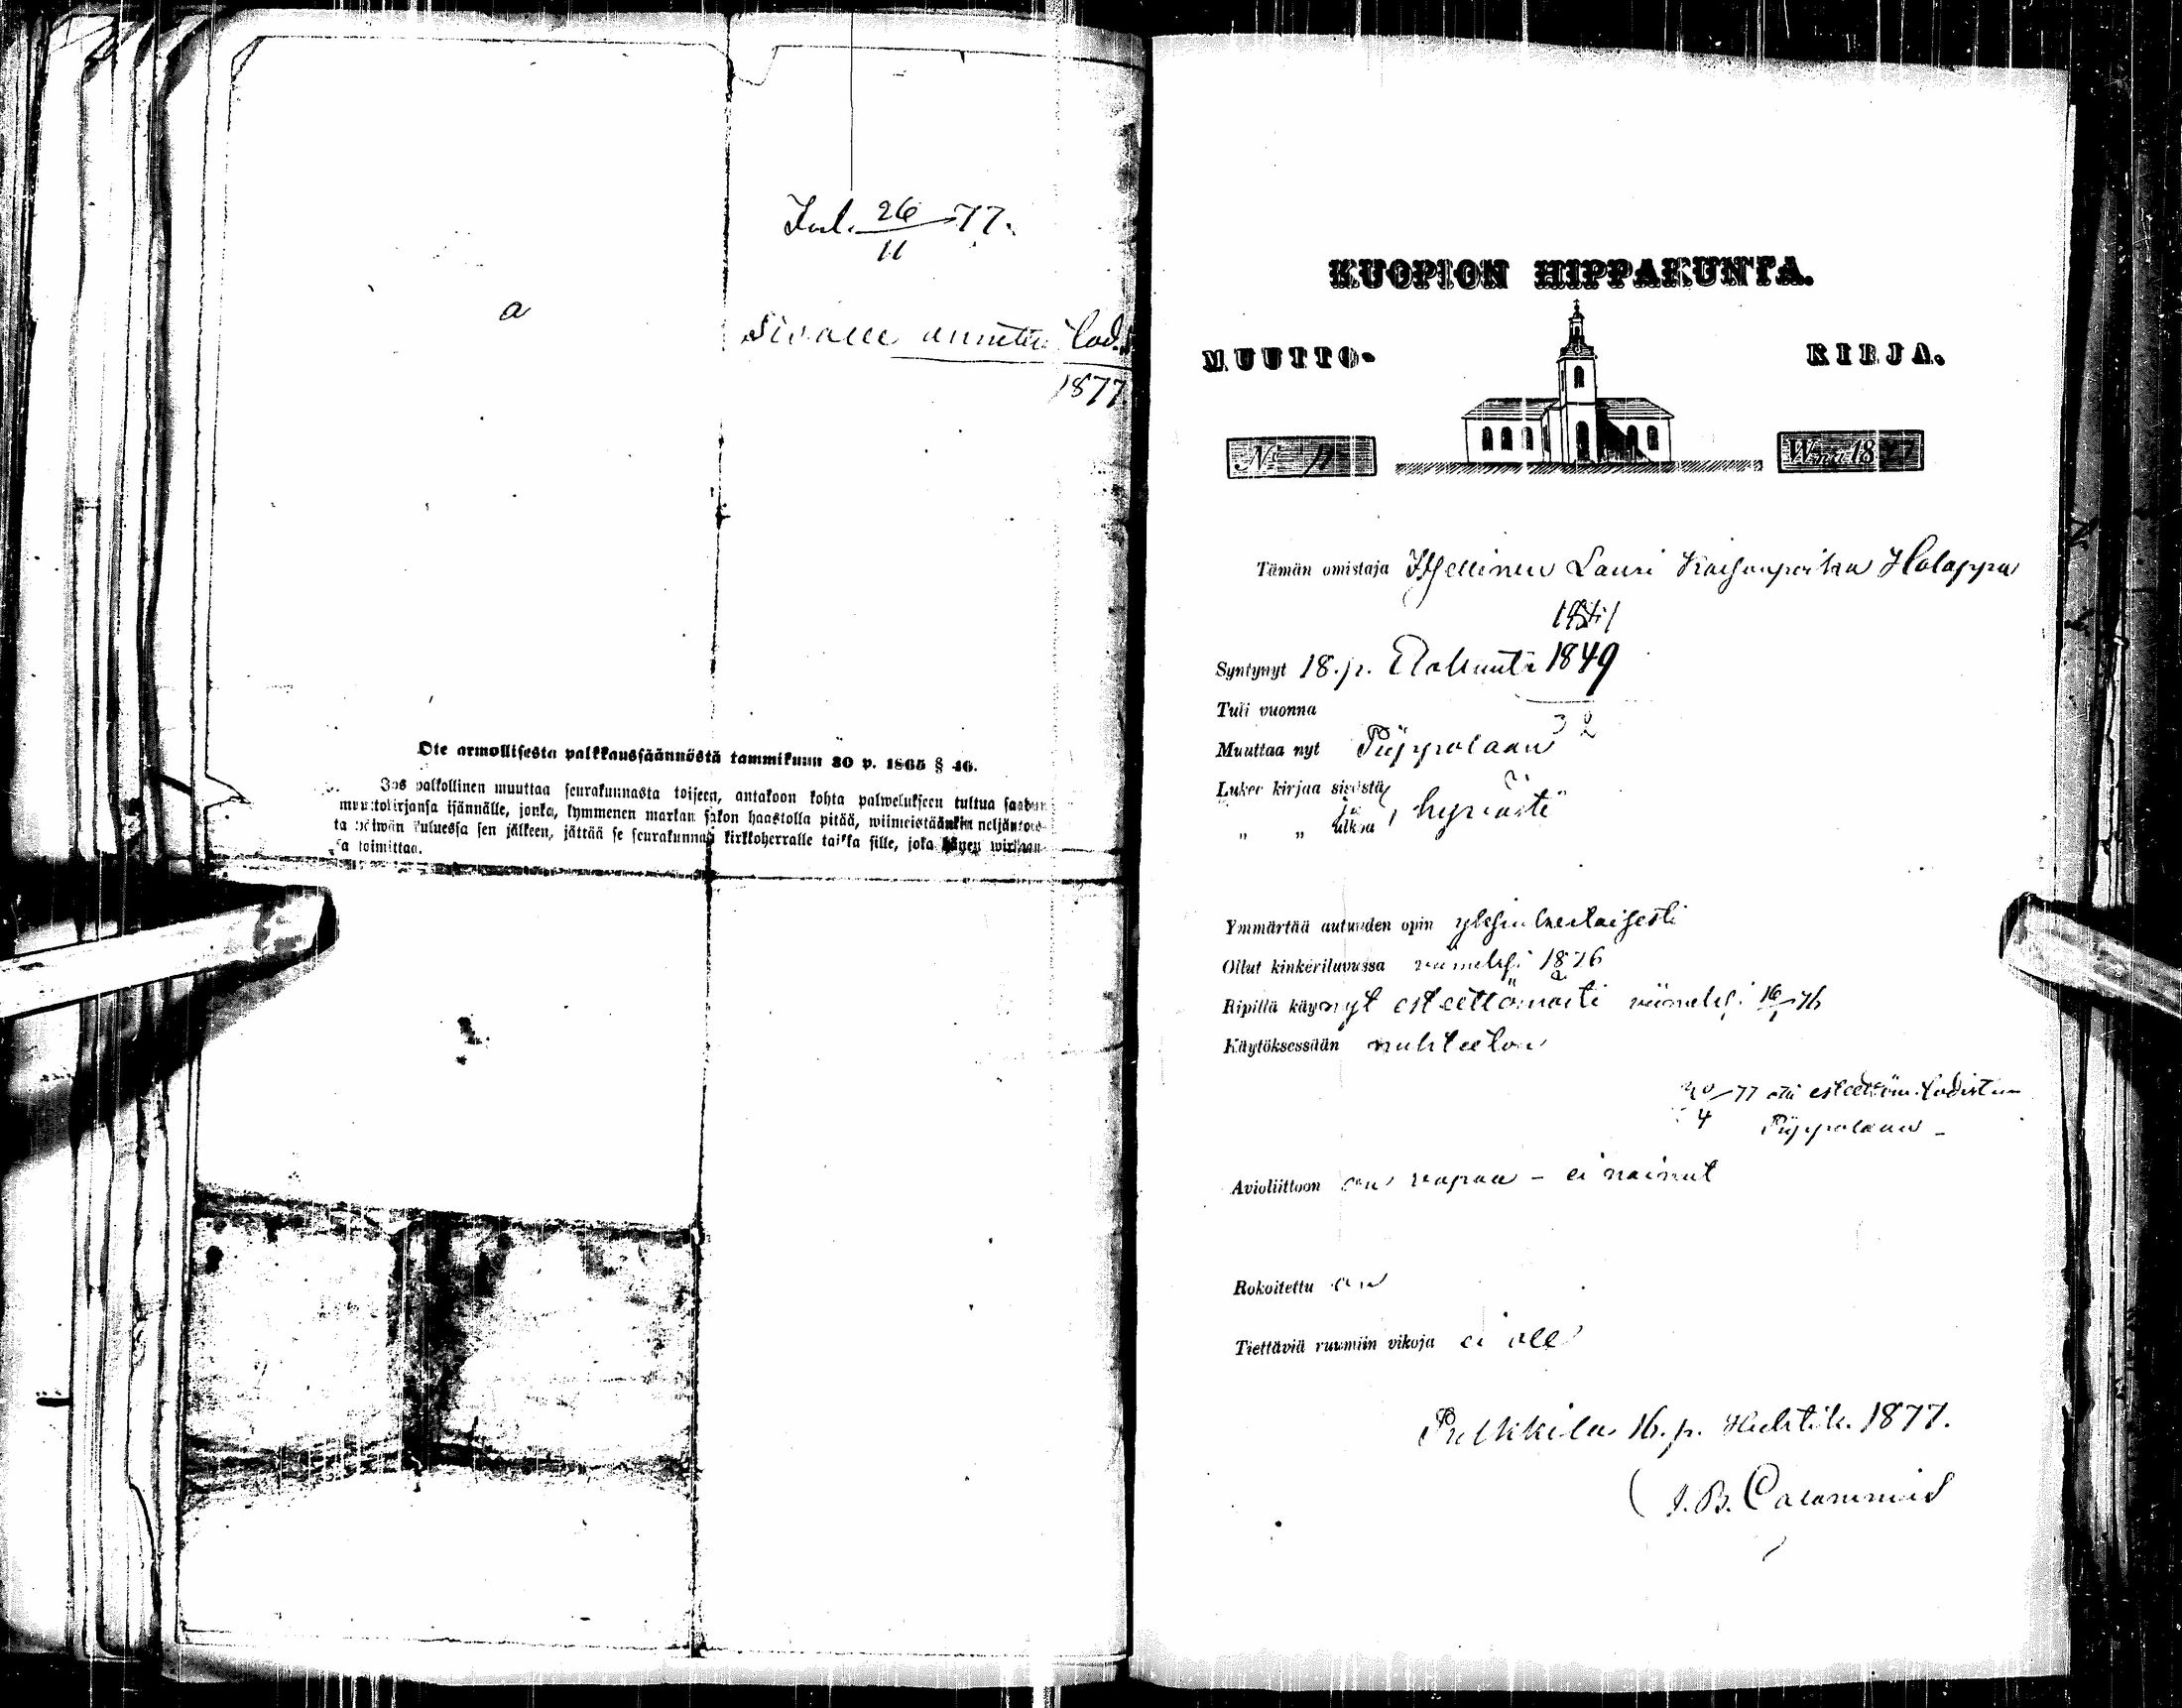 a
Inl. 26/11 77.
Sivalle annettu tod.
1877
Ote armollisesta palkkaussäännöstä tammikuun 30 p. 1865 § 46.
Jos palkollinen muuttaa seurakunnasta toiseen, antakoon kohta palwelukseen tultua saadun
muuttokirjansa isännälle, jonka, kymmenen markan sakon haastolla pitää, wiimeistäänkin neljäntois-
ta päiwän kuluessa sen jälkeen, jättää se seurakunnan kirkkoherralle taikka sille, joka hänen wirkaan-
sa toimittaa.
KUOPION HIPPAKUNTA.
MUUTTO- KIRJA.
No Wna 1877
Tämän omistaja Itsellinen Lauri Kaisanpoika Holappa
Syntynyt 18. p. Elokuuta 1849
Tuli vuonna
Muuttaa nyt Piippolaan
Lukee kirjaa sisästä
ja hyvästi
„ „ ulkoa
Ymmärtää autuuden opin yksinkertaisesti
Ollut kinkeriluvussa viimeksi 1876
Ripillä käynyt esteettömästi viimeksi 76
Käytöksessään nuhteeton
/4 77 otti esteettöm. todistuk
Piippolaan –
Avioliittoon on vapaa – ei nainut
Rokoitettu on
Tiettäviä ruumiin vikoja ei ole
Pulkkila 16. p. Huhtik. 1877.
J. B. Calamnius